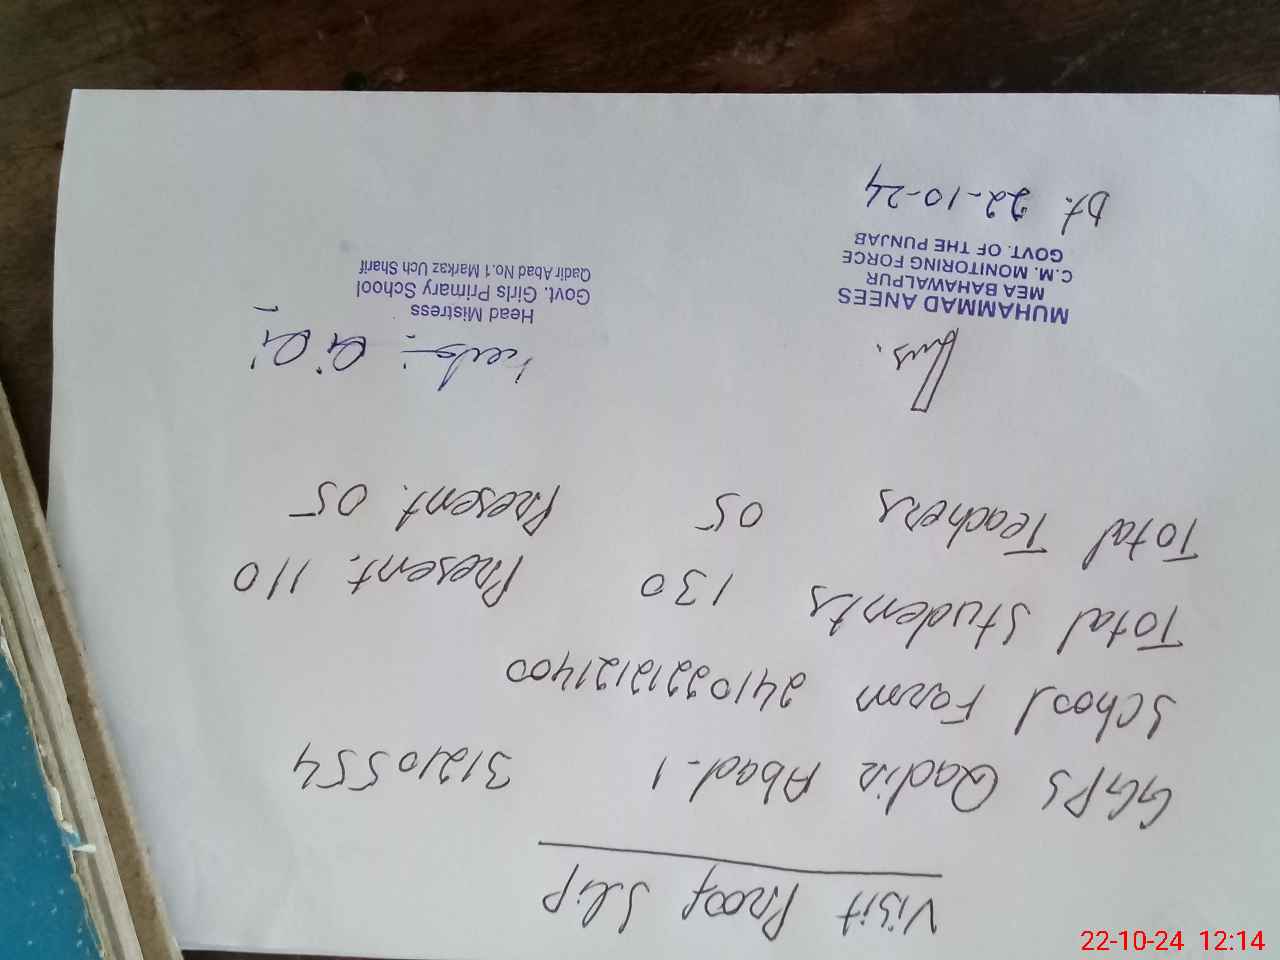 Visit Proof Slip
GGPS Qadir Abad-1 31210554
School Form 241022121121400
Total Students 130 Present. 110
Total Teachers 05 Present. 05
MUHAMMAD ANEES
MEA BAHAWALPUR
C.M. MONITORING FORCE
GOVT. OF THE PUNJAB
Dt. 22-10-24
Head Mistress
Govt. Girls Primary School
Qadir Abad No.1 Markaz Uch Sharif
22-10-24 12:14